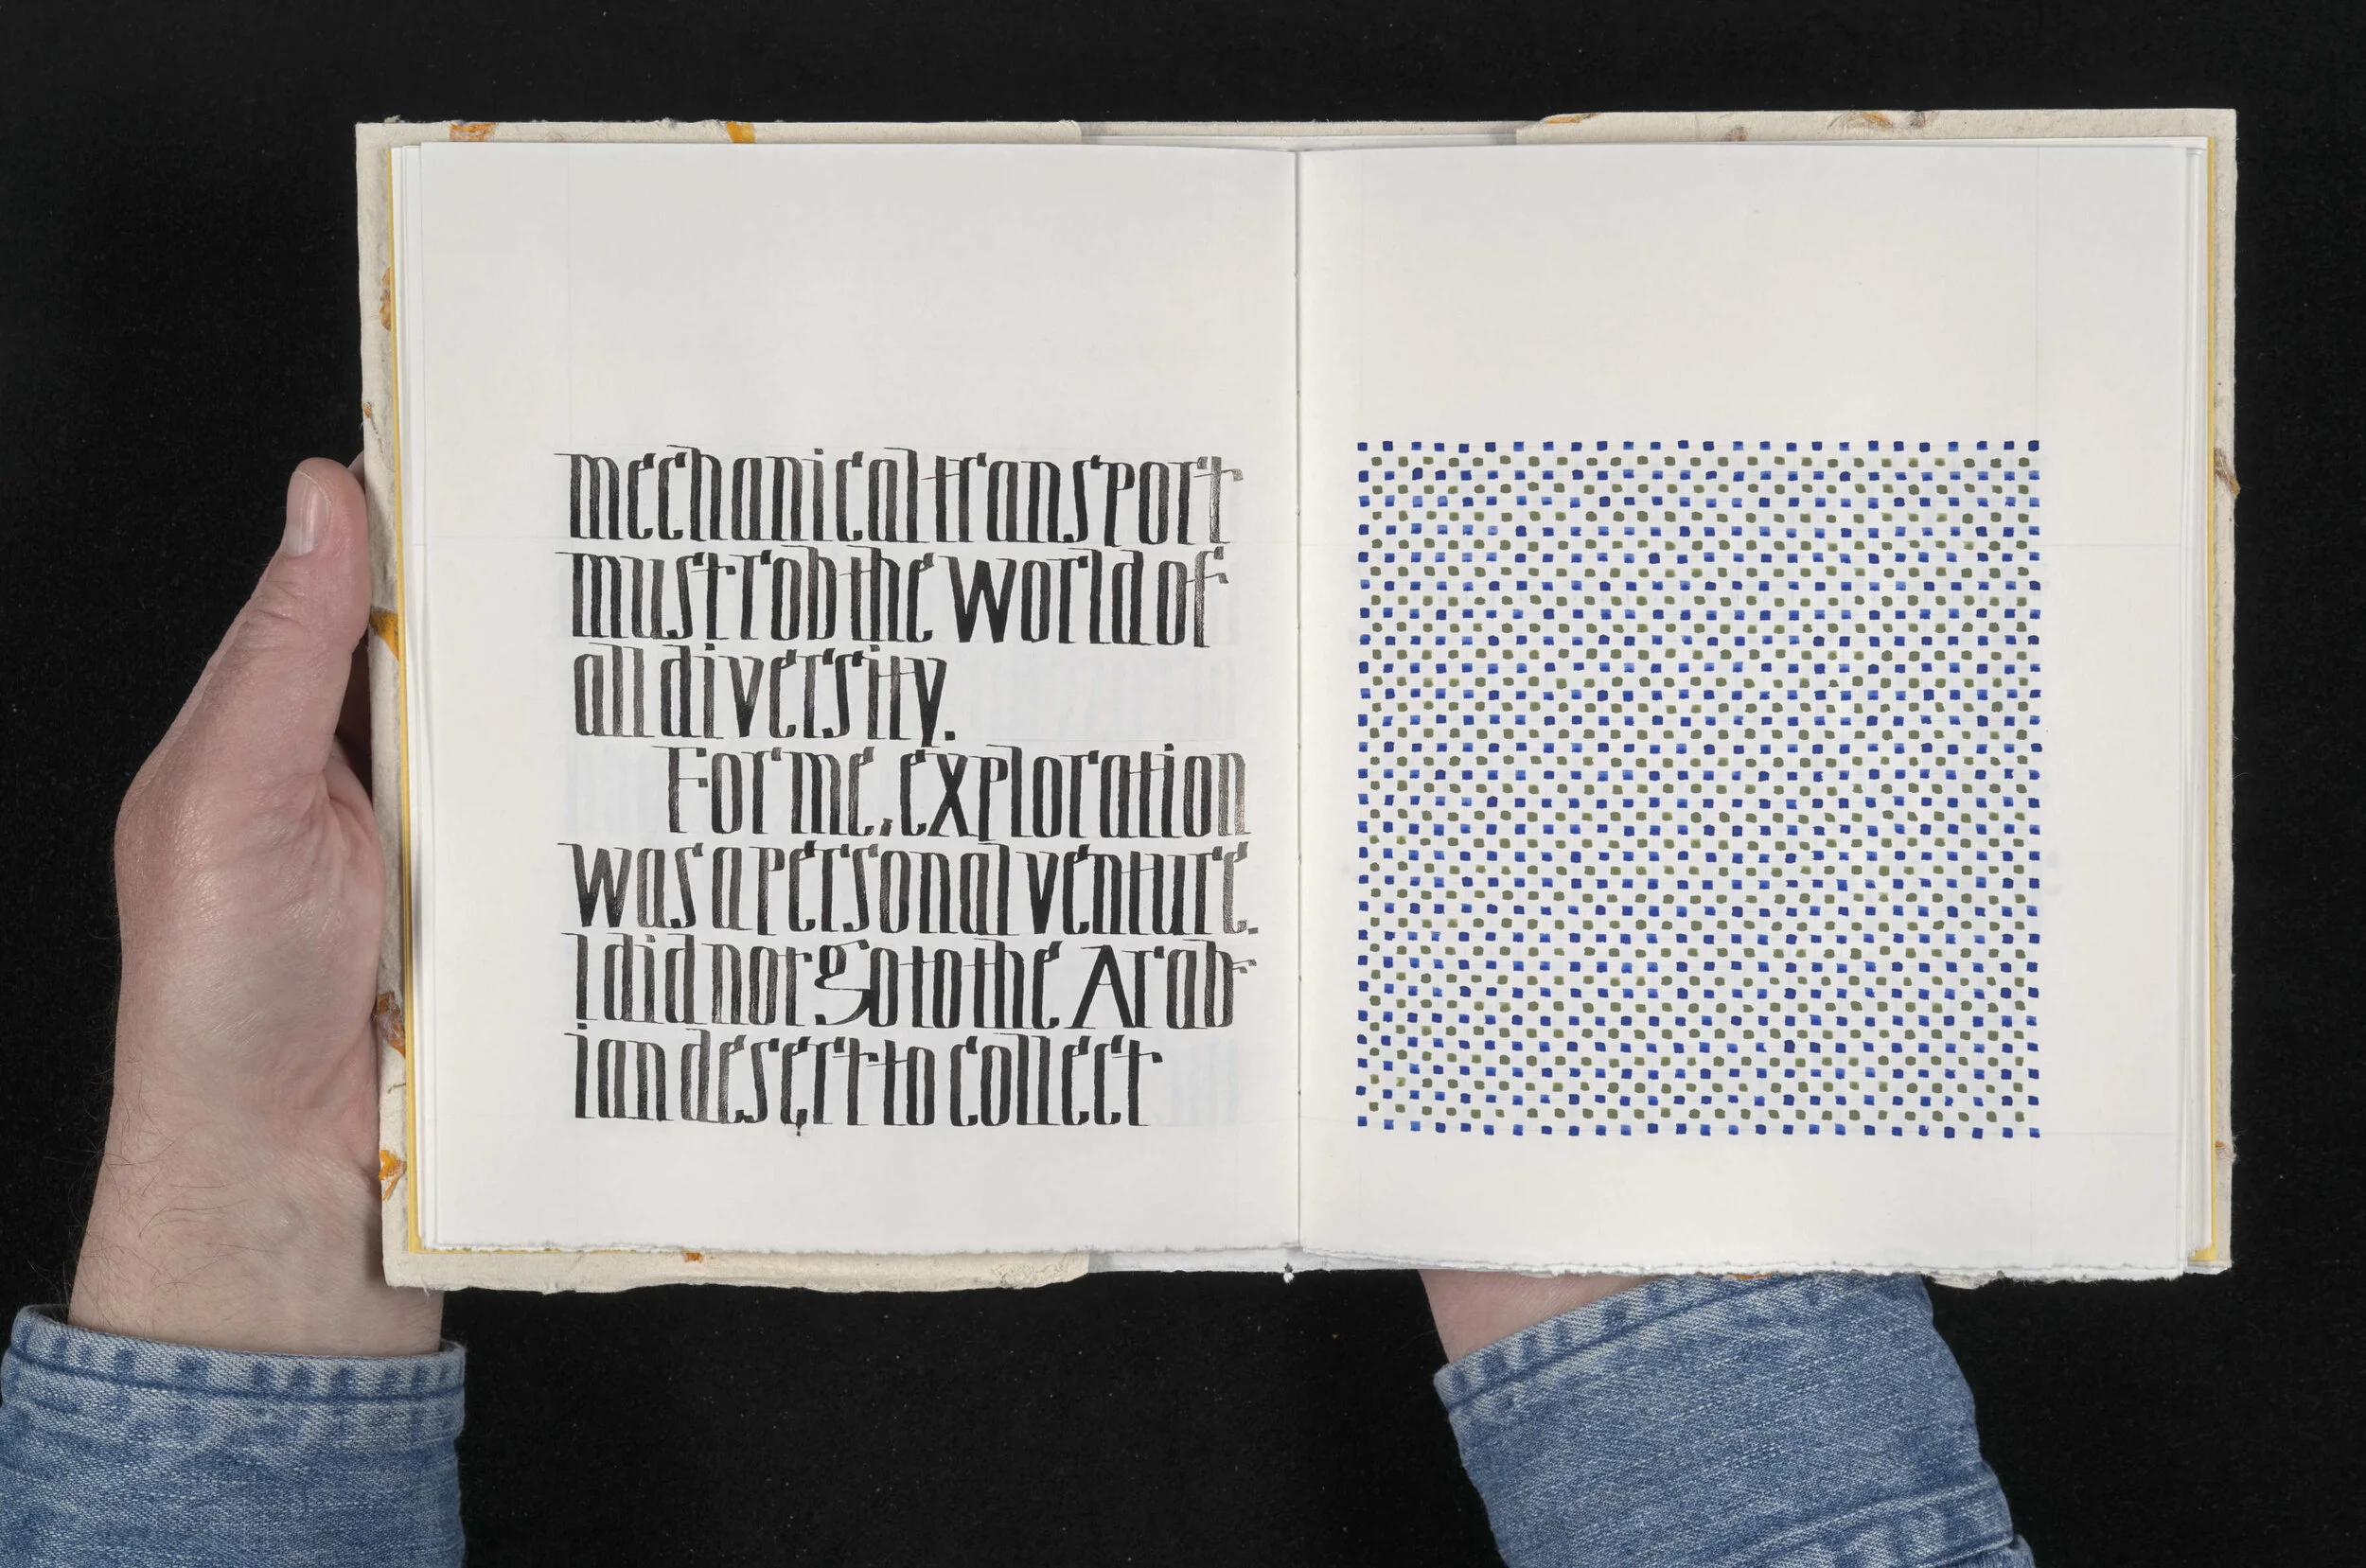 mechanical transport
must rob the world of
all diversity.
For me, exploration
was a personal venture.
I did not go to the Arab
ian desert to collect